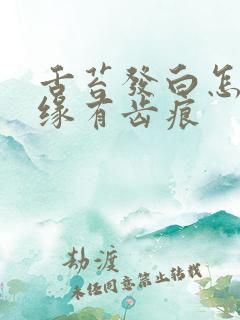 舌苔發白怎
缘有齿痕
劫渡
未经同意禁止转载